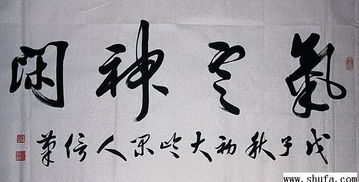 氣定神閑
戊子秋初大人筆
www.shufa.com